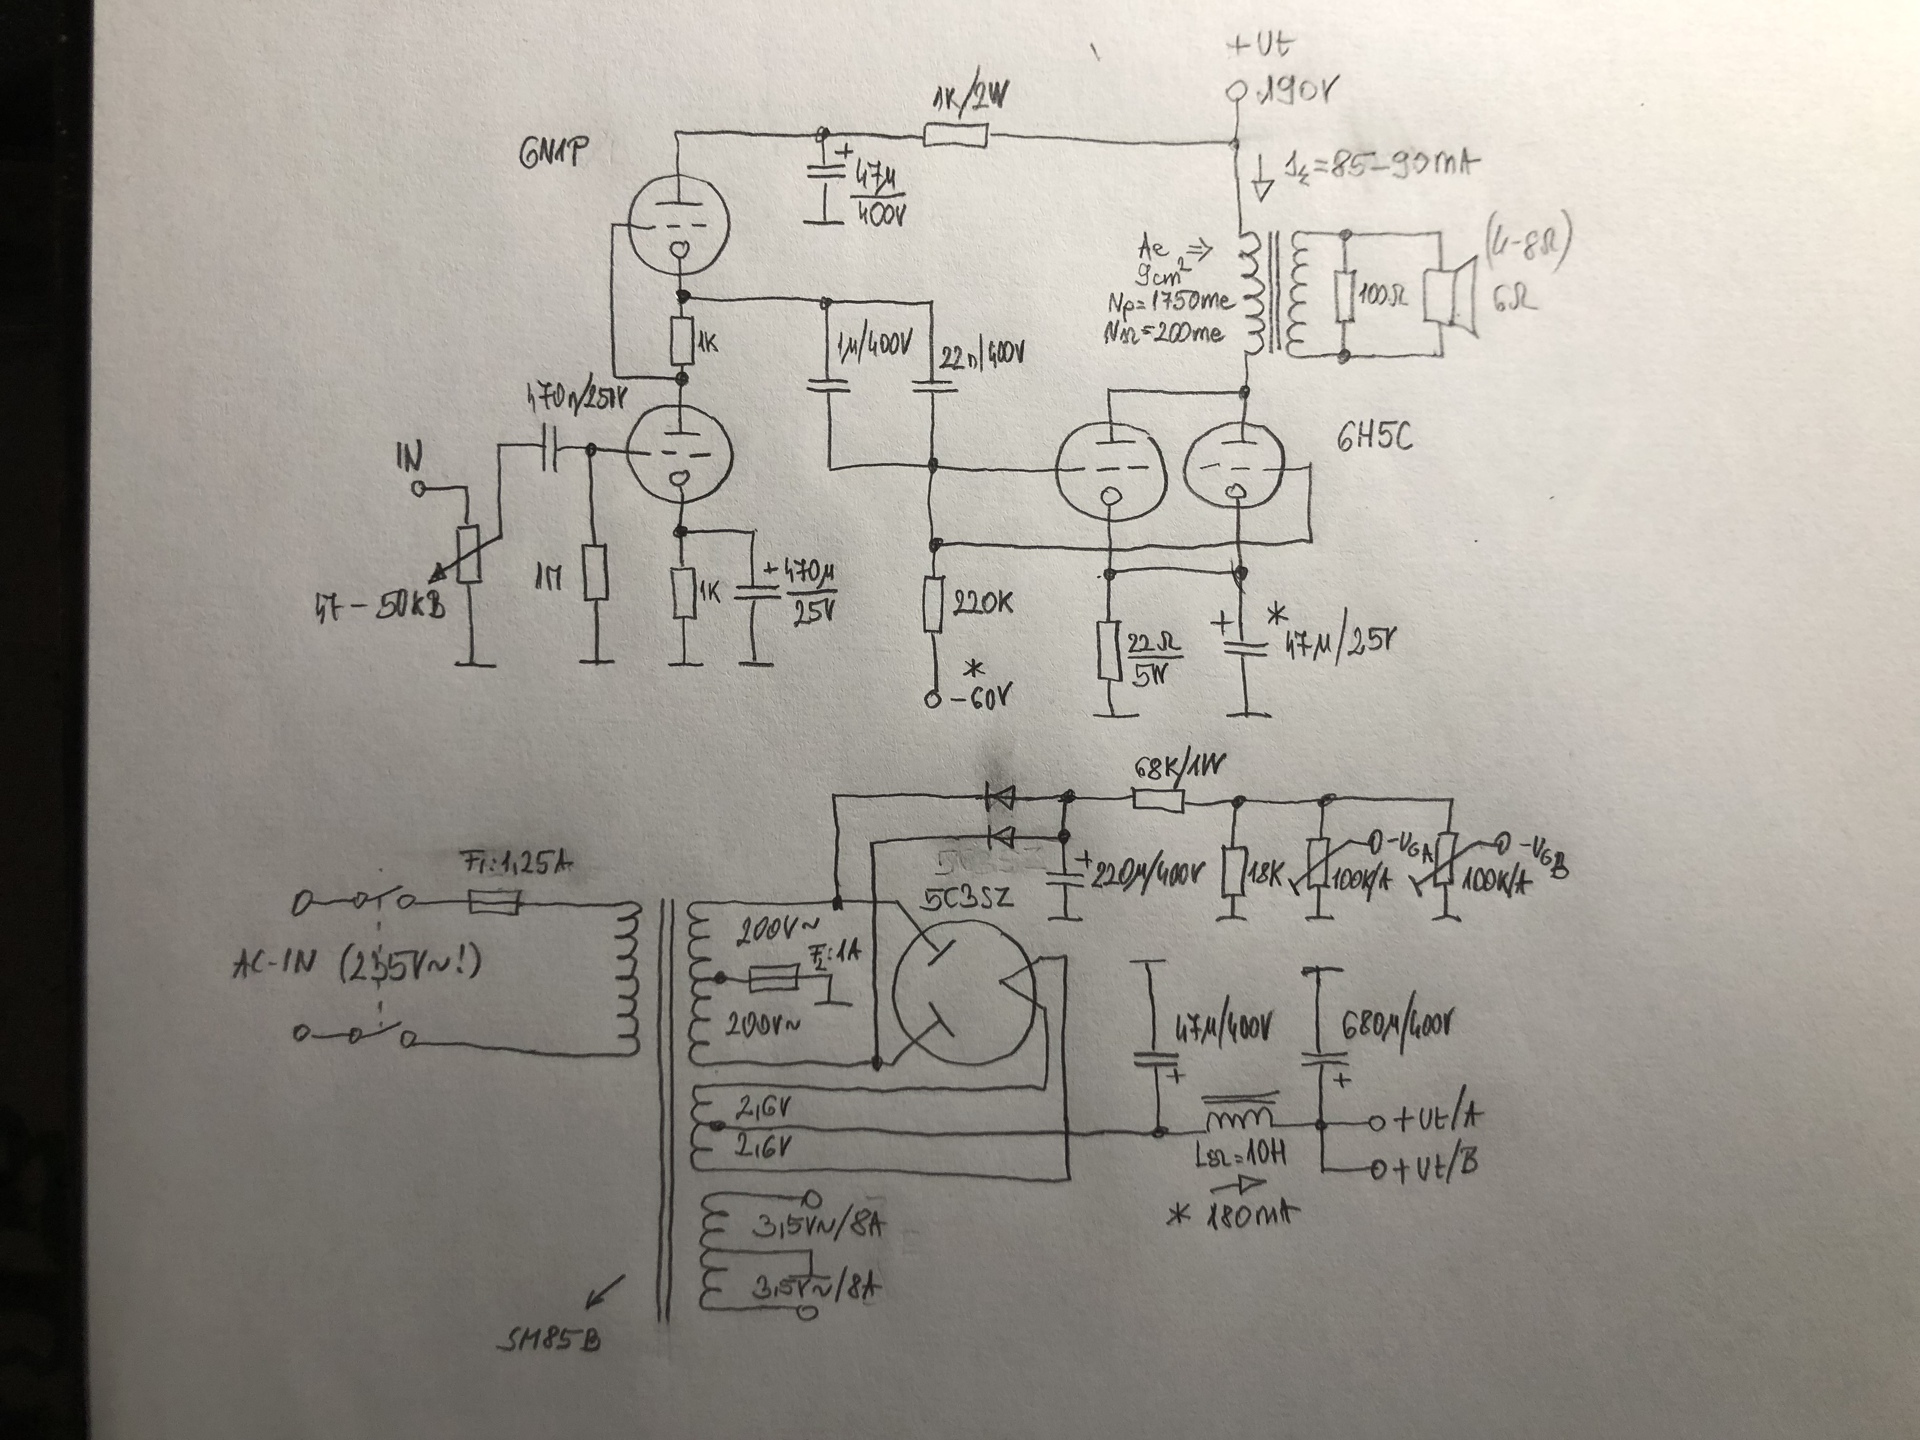 +Ut
190V
1K/2W
6N1P
+
47µ
400V
I₂=85-90mA
Ae ⇒
9cm²
Np=1750me
=200me
100Ω
(4-8Ω)
6Ω
1K
1µ/400V
22n/400V
470n/250V
6H5C
IN
47-50KB
1M
1K
+470µ
25V
220K
*
-60V
22Ω
5W
+
*
47µ/25V
68K/1W
F₁:1,25A
5C3SZ
+
220µ/400V
18K
100K/A
-UGA
100K/A
-UGB
AC-IN (235V~!)
200V~
F₂:1A
200V~
47µ/400V
+
680µ/400V
+
2,6V
2,6V
+Ut/A
=10H
+Ut/B
* 180mA
3,5V~/8A
3,5V~/8A
SM85B